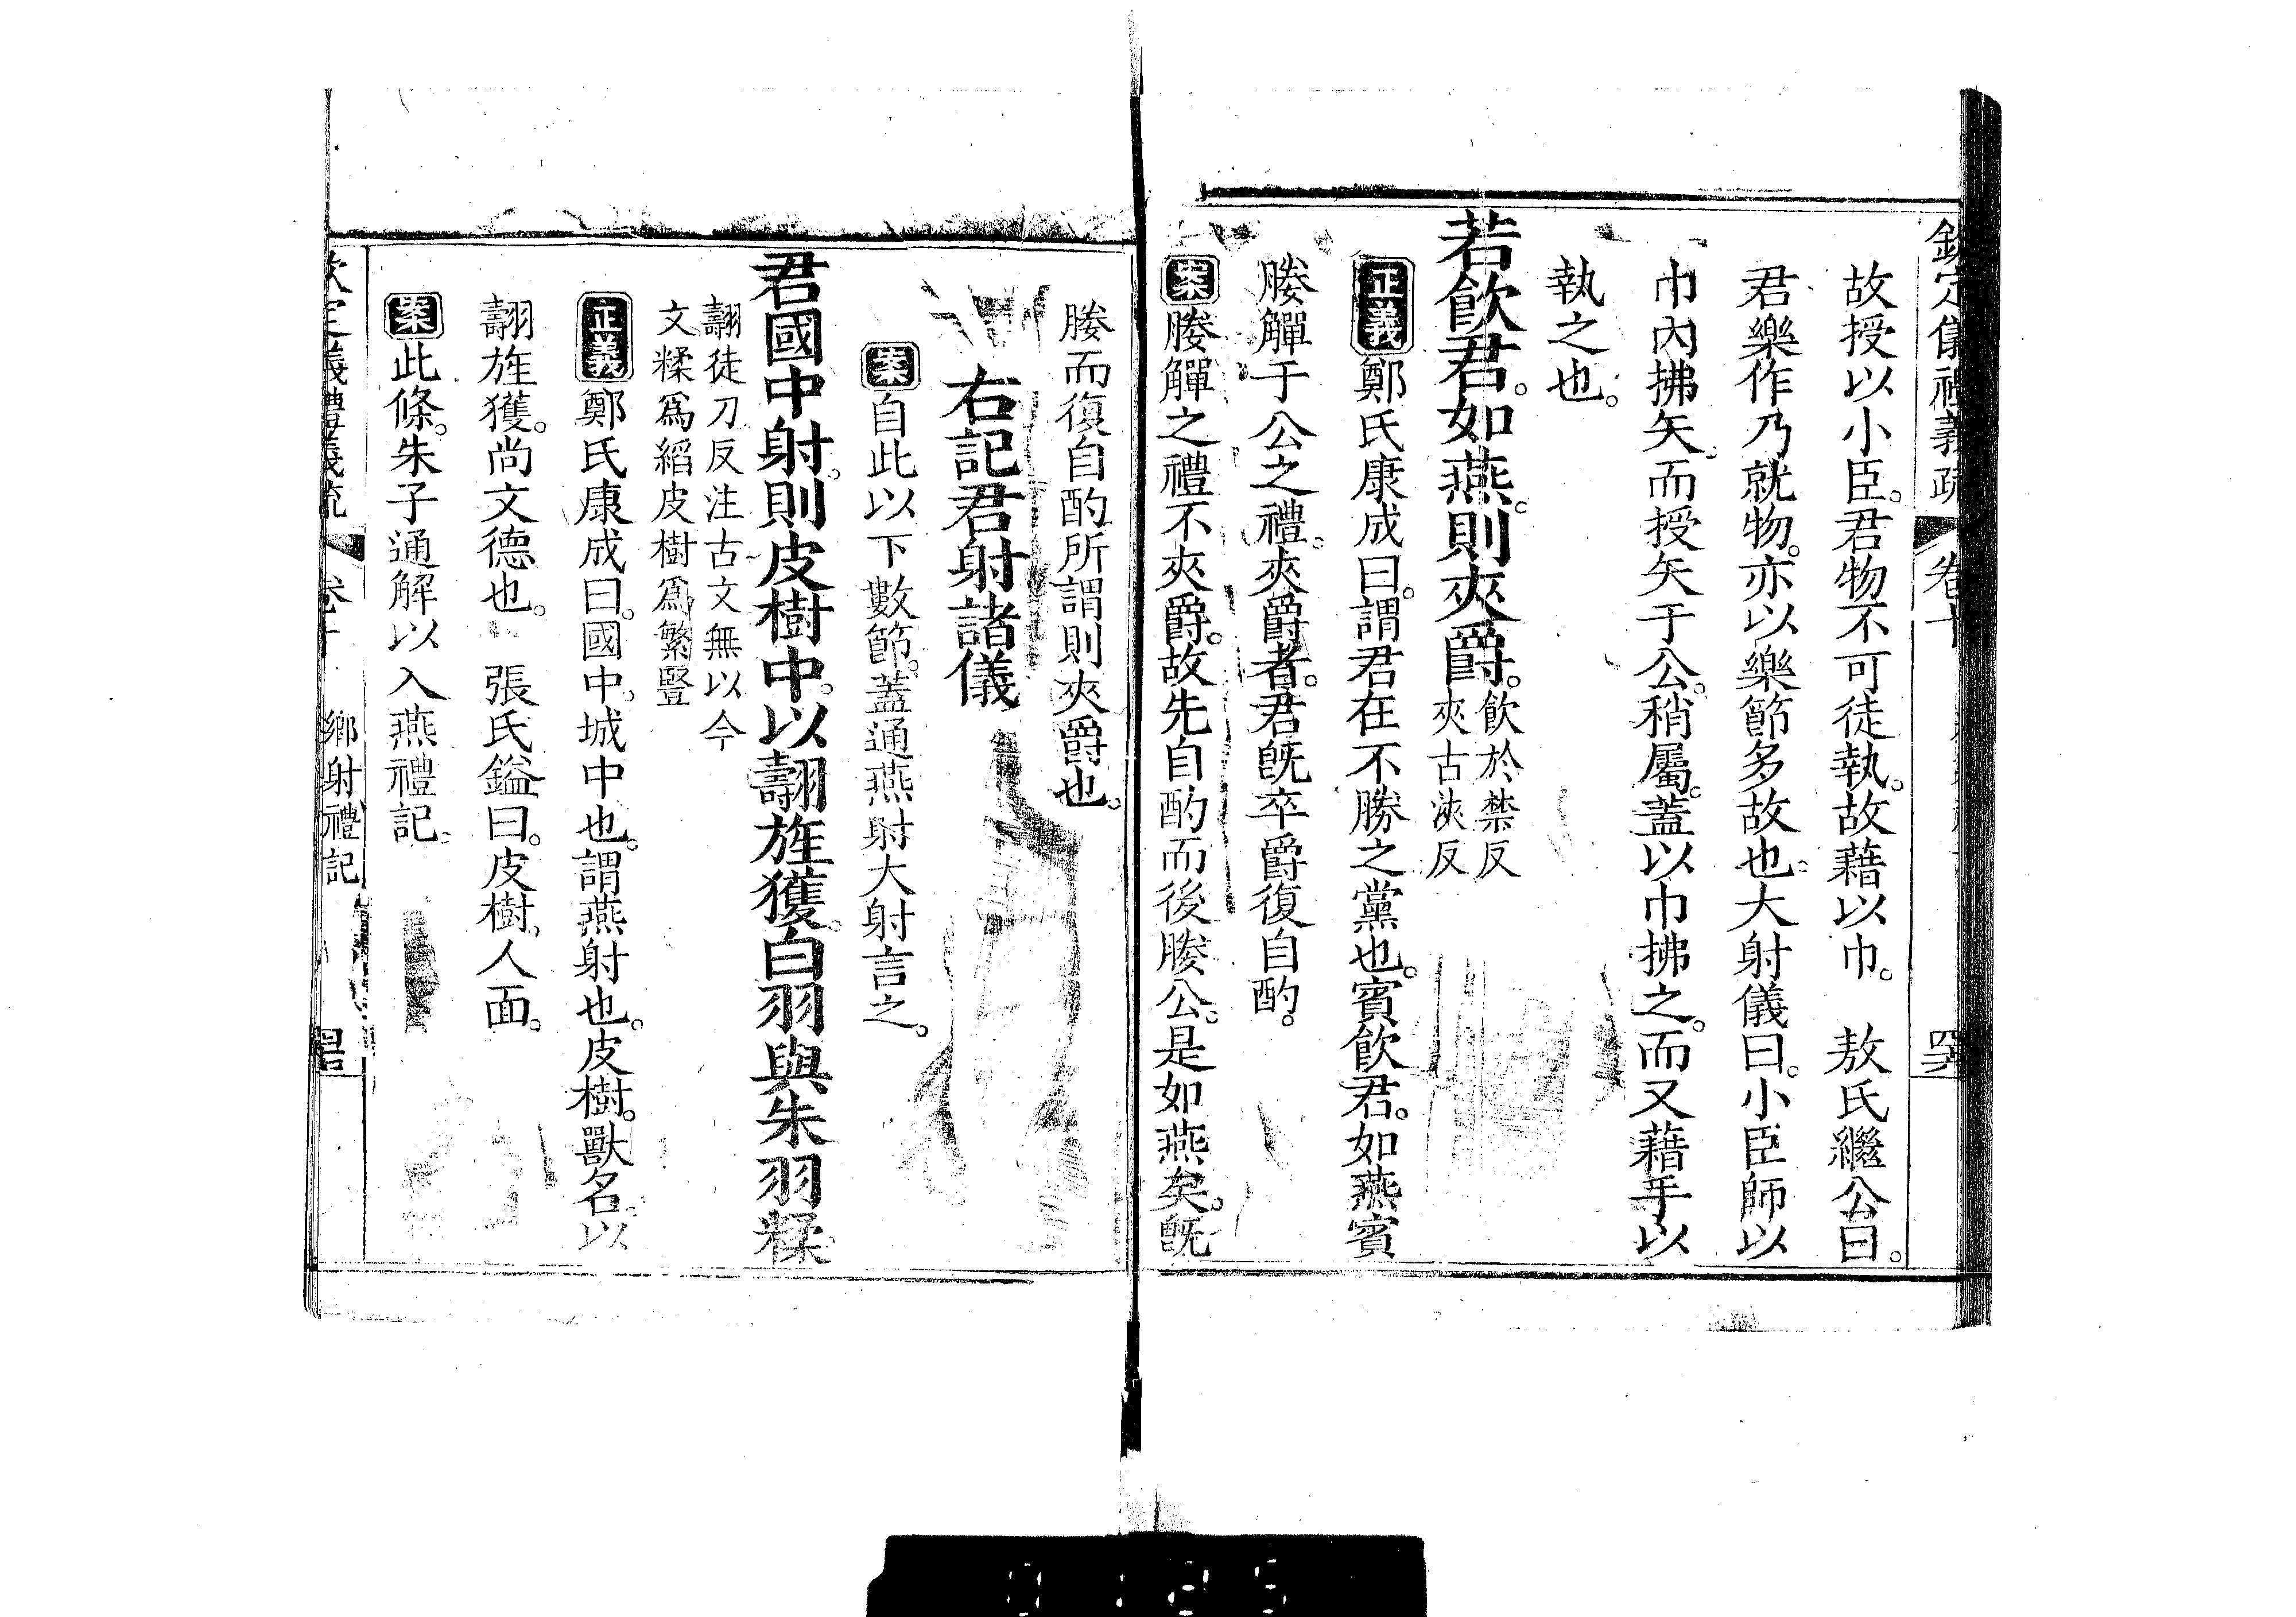 欽定儀禮義疏 卷十
故授以小臣。君物不可徒執。故藉以巾。 敖氏繼公曰。
君樂作乃就物。亦以樂節多故也。大射儀曰。小臣師以
巾內拂矢。而授矢于公。稍屬。蓋以巾拂之。而又藉手以
執之也。
若飮君。如燕。則夾爵。飮於禁反
夾古浹反
正義鄭氏康成曰。謂君在不勝之黨也。賓飮君。如燕賓
媵觶于公之禮。夾爵者。君旣卒爵復自酌。
案媵觶之禮不夾爵。故先自酌而後媵公。是如燕矣。旣
媵而復自酌所謂則夾爵也。
右記君射諸儀
案自此以下數節。蓋通燕射大射言之。
君國中射。則皮樹中。以翿旌獲。白羽與朱羽糅。
翿徒刀反注古文無以今
文糅爲縚皮樹爲繁豎
正義鄭氏康成曰。國中。城中也。謂燕射也。皮樹。獸名。以
翿旌獲。尚文德也。 張氏鎰曰。皮樹。人面。
案此條。朱子通解以入燕禮記。
欽定儀禮義疏 卷十 鄉射禮記